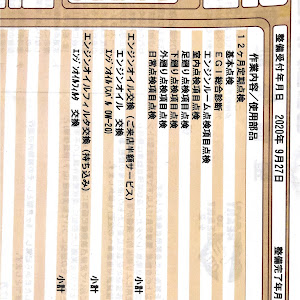 整備受付年月日 2020年 9月27日 整備完了年月
作業内容/使用部品
12ヶ月定期点検
基本点検
EGI総合診断
エンジンルーム点検項目点検
室内点検項目点検
足廻り点検項目点検
下廻り点検項目点検
外廻り点検項目点検
日常点検項目点検
小計
エンジンオイル交換(ご来店半額サービス)
エンジンオイル 交換
0W-20)
小計
エンジンオイルフィルタ交換(持ち込み)
エンジンオイルフィルタ 交換
小計